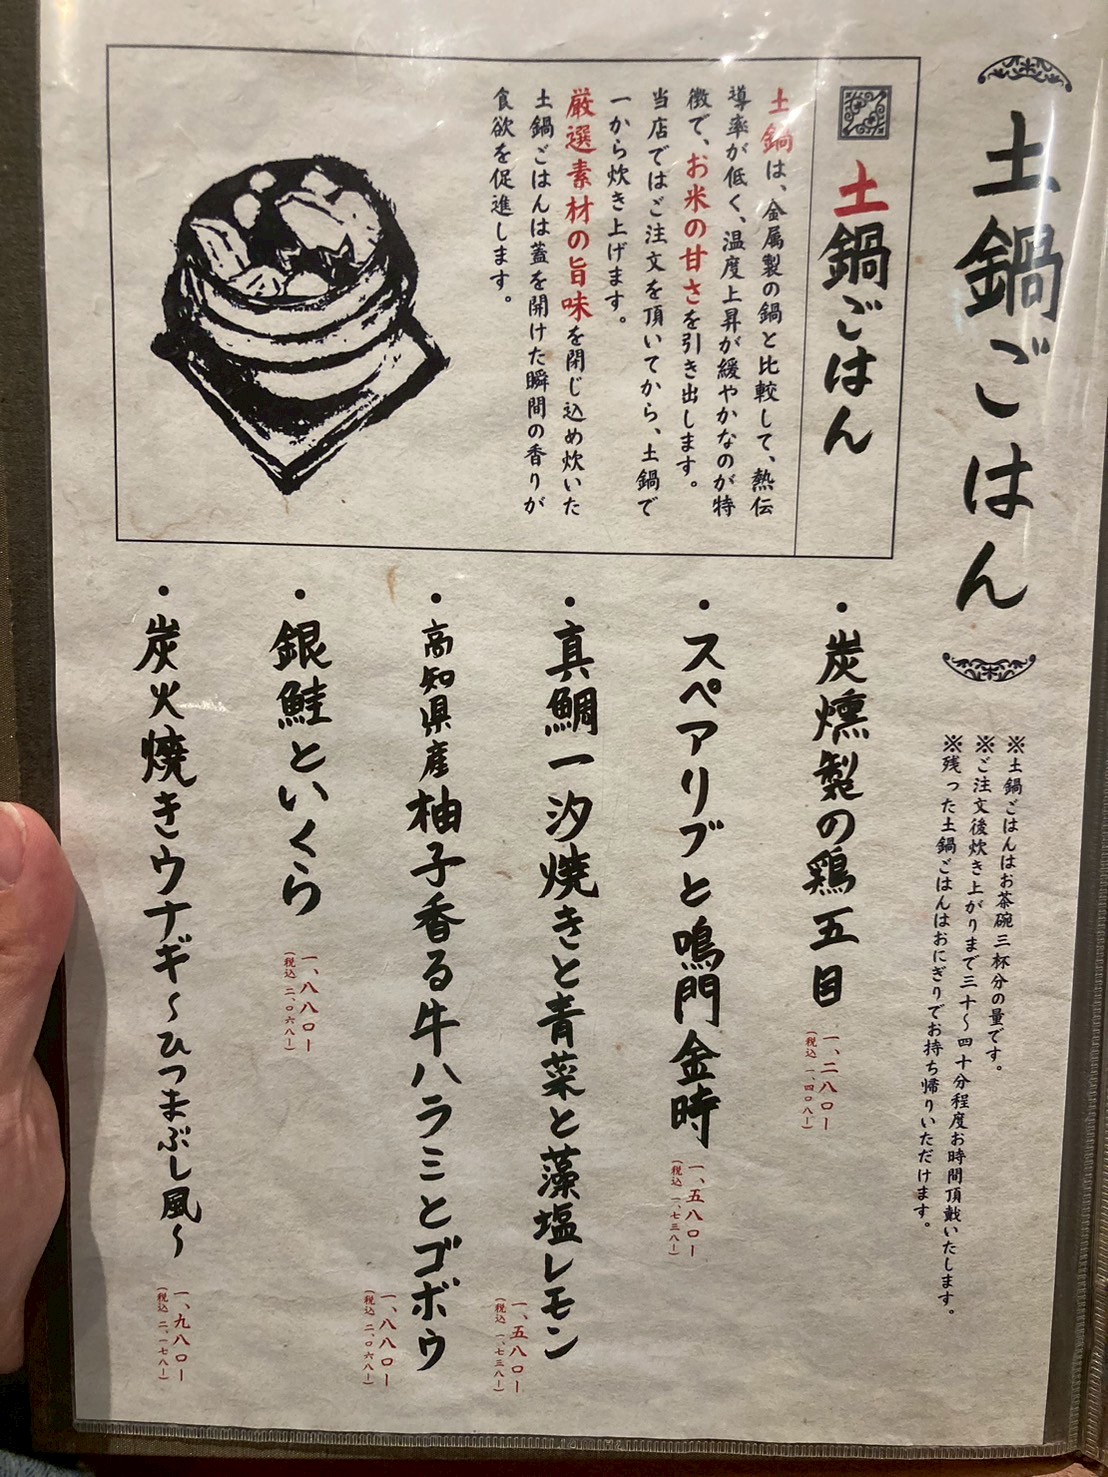 土鍋ごはん
※土鍋ごはんはお茶碗三杯分の量です。
※ご注文後炊き上がりまで三十〜四十分程度お時間頂戴いたします。
※残った土鍋ごはんはおにぎりでお持ち帰りいただけます。
土鍋ごはん
土鍋は、金属製の鍋と比較して、熱伝
導率が低く、温度上昇が緩やかなのが特
徴で、お米の甘さを引き出します。
当店ではご注文を頂いてから、土鍋で
一から炊き上げます。
厳選素材の旨味を閉じ込め炊いた
土鍋ごはんは蓋を開けた瞬間の香りが
食欲を促進します。
・炭燻製の鶏五目
一、二八〇ー
(税込 一、四〇八ー)
・スペアリブと鳴門金時
一、五八〇ー
(税込 一、七三八ー)
・真鯛一汐焼きと青菜と藻塩レモン
一、五八〇ー
(税込 一、七三八ー)
・高知県産柚子香る牛ハラミとゴボウ
一、八八〇ー
(税込 二、〇六八ー)
・銀鮭といくら
一、八八〇ー
(税込 二、〇六八ー)
・炭火焼きウナギ〜ひつまぶし風〜
一、九八〇ー
(税込 二、一七八ー)